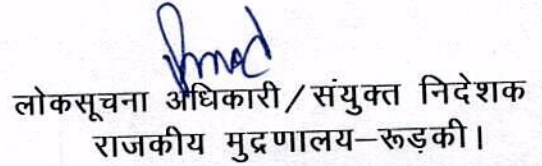 लोकसूचना अधिकारी/संयुक्त निदेशक
राजकीय मुद्रणालय–रूड़की।